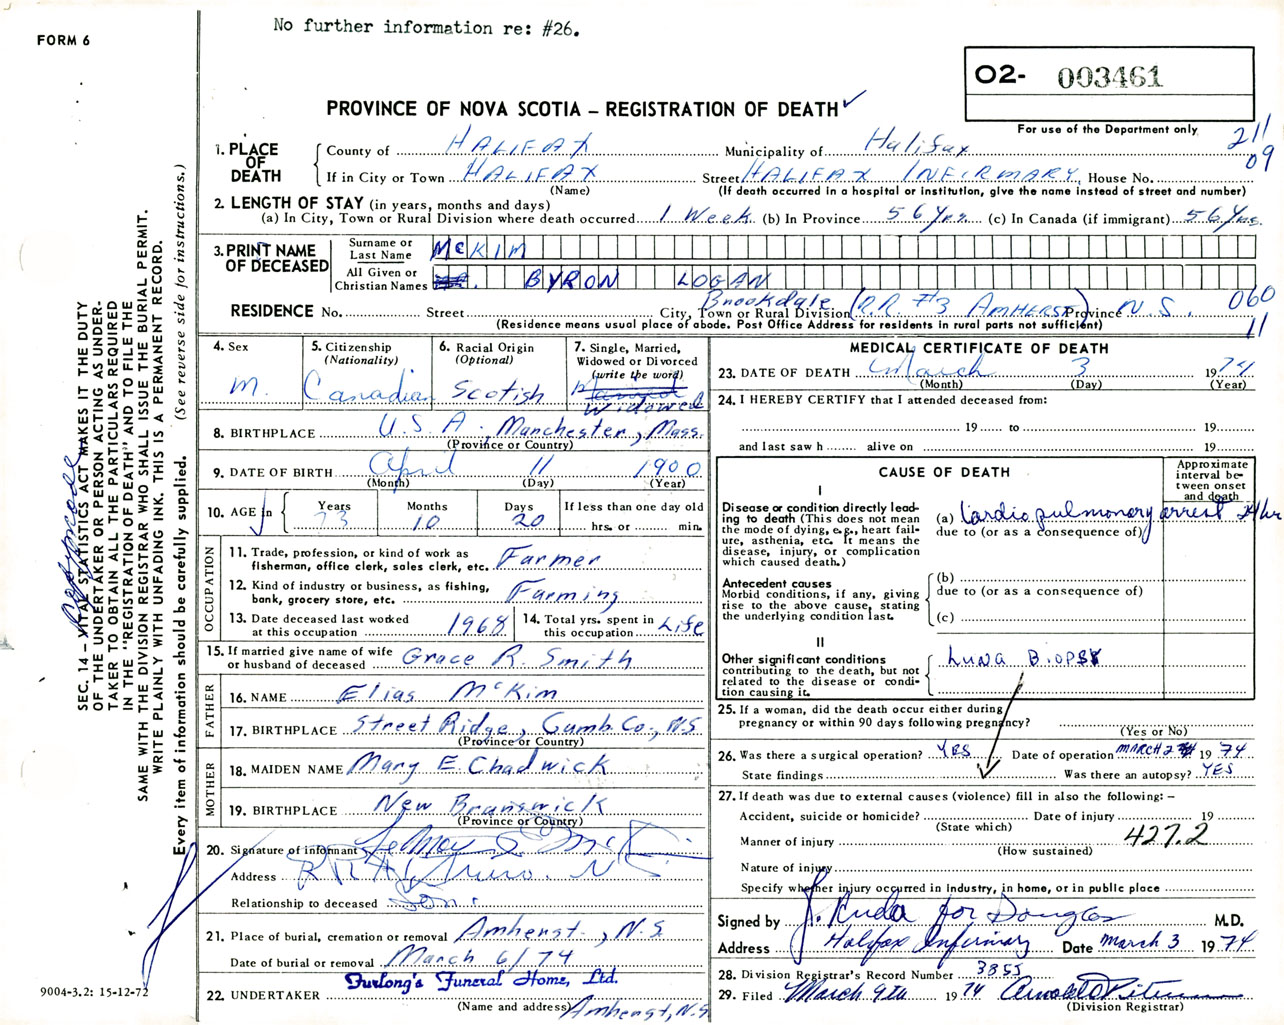 No further information re: #26.
FORM 6
O2- 003461
PROVINCE OF NOVA SCOTIA – REGISTRATION OF DEATH ✓
For use of the Department only
211
09
1. PLACE OF DEATH
County of HALIFAX Municipality of Halifax
If in City or Town HALIFAX Street HALIFAX INFIRMARY House No.
(Name) (If death occurred in a hospital or institution, give the name instead of street and number)
2. LENGTH OF STAY (in years, months and days)
(a) In City, Town or Rural Division where death occurred 1 Week (b) In Province 56 Yrs. (c) In Canada (if immigrant) 56 Yrs.
3. PRINT NAME OF DECEASED
Surname or Last Name McKIM
All Given or Christian Names BYRON LOGAN
RESIDENCE No. Street City, Town or Rural Division Brookdale (R.R. #3 AMHERST) Province N.S. 060
(Residence means usual place of abode. Post Office Address for residents in rural parts not sufficient)
11
4. Sex
M.
5. Citizenship (Nationality)
Canadian
6. Racial Origin (Optional)
Scotish
7. Single, Married, Widowed or Divorced (write the word)
Widowed
8. BIRTHPLACE U.S.A. Manchester, Mass.
(Province or Country)
9. DATE OF BIRTH April 11 1900
(Month) (Day) (Year)
10. AGE in Years Months Days If less than one day old
73 10 20 hrs. or min.
OCCUPATION
11. Trade, profession, or kind of work as fisherman, office clerk, sales clerk, etc. Farmer
12. Kind of industry or business, as fishing, bank, grocery store, etc. Farming
13. Date deceased last worked at this occupation 1968
14. Total yrs. spent in this occupation Life
15. If married give name of wife or husband of deceased Grace R. Smith
FATHER
16. NAME Elias McKim
17. BIRTHPLACE Street Ridge, Cumb. Co., N.S.
(Province or Country)
MOTHER
18. MAIDEN NAME Mary E. Chadwick
19. BIRTHPLACE New Brunswick
(Province or Country)
20. Signature of informant
Address R R #1, Truro. N S
Relationship to deceased Son.
21. Place of burial, cremation or removal Amherst., N.S
Date of burial or removal March 6/74
Furlong's Funeral Home, Ltd.
22. UNDERTAKER
(Name and address) Amherst, N.S
MEDICAL CERTIFICATE OF DEATH
23. DATE OF DEATH March 3 1974
(Month) (Day) (Year)
24. I HEREBY CERTIFY that I attended deceased from:
19 to 19
and last saw h alive on 19
CAUSE OF DEATH
Approximate interval between onset and death
I
Disease or condition directly leading to death (This does not mean the mode of dying, e.g., heart failure, asthenia, etc. It means the disease, injury, or complication which caused death.)
(a) Cardio pulmonary arrest 24 hr
due to (or as a consequence of)
Antecedent causes
Morbid conditions, if any, giving rise to the above cause, stating the underlying condition last.
(b)
due to (or as a consequence of)
(c)
II
Other significant conditions contributing to the death, but not related to the disease or condition causing it.
LUNG BIOPSY
25. If a woman, did the death occur either during pregnancy or within 90 days following pregnancy?
(Yes or No)
26. Was there a surgical operation? YES Date of operation MARCH 2 1974
State findings Was there an autopsy? YES
27. If death was due to external causes (violence) fill in also the following: –
Accident, suicide or homicide? Date of injury 19
(State which)
Manner of injury 427.2
(How sustained)
Nature of injury
Specify whether injury occurred in industry, in home, or in public place
Signed by J. Ruda for Douglas M.D.
Address Halifax Infirmary Date March 3 1974
28. Division Registrar's Record Number 3855
29. Filed March 9th 1974
(Division Registrar)
SEC. 14 – VITAL STATISTICS ACT MAKES IT THE DUTY
OF THE UNDERTAKER OR PERSON ACTING AS UNDER-
TAKER TO OBTAIN ALL THE PARTICULARS REQUIRED
IN THE "REGISTRATION OF DEATH" AND TO FILE THE
SAME WITH THE DIVISION REGISTRAR WHO SHALL ISSUE THE BURIAL PERMIT.
WRITE PLAINLY WITH UNFADING INK. THIS IS A PERMANENT RECORD.
Every item of information should be carefully supplied. (See reverse side for instructions.)
9004-3.2: 15-12-72